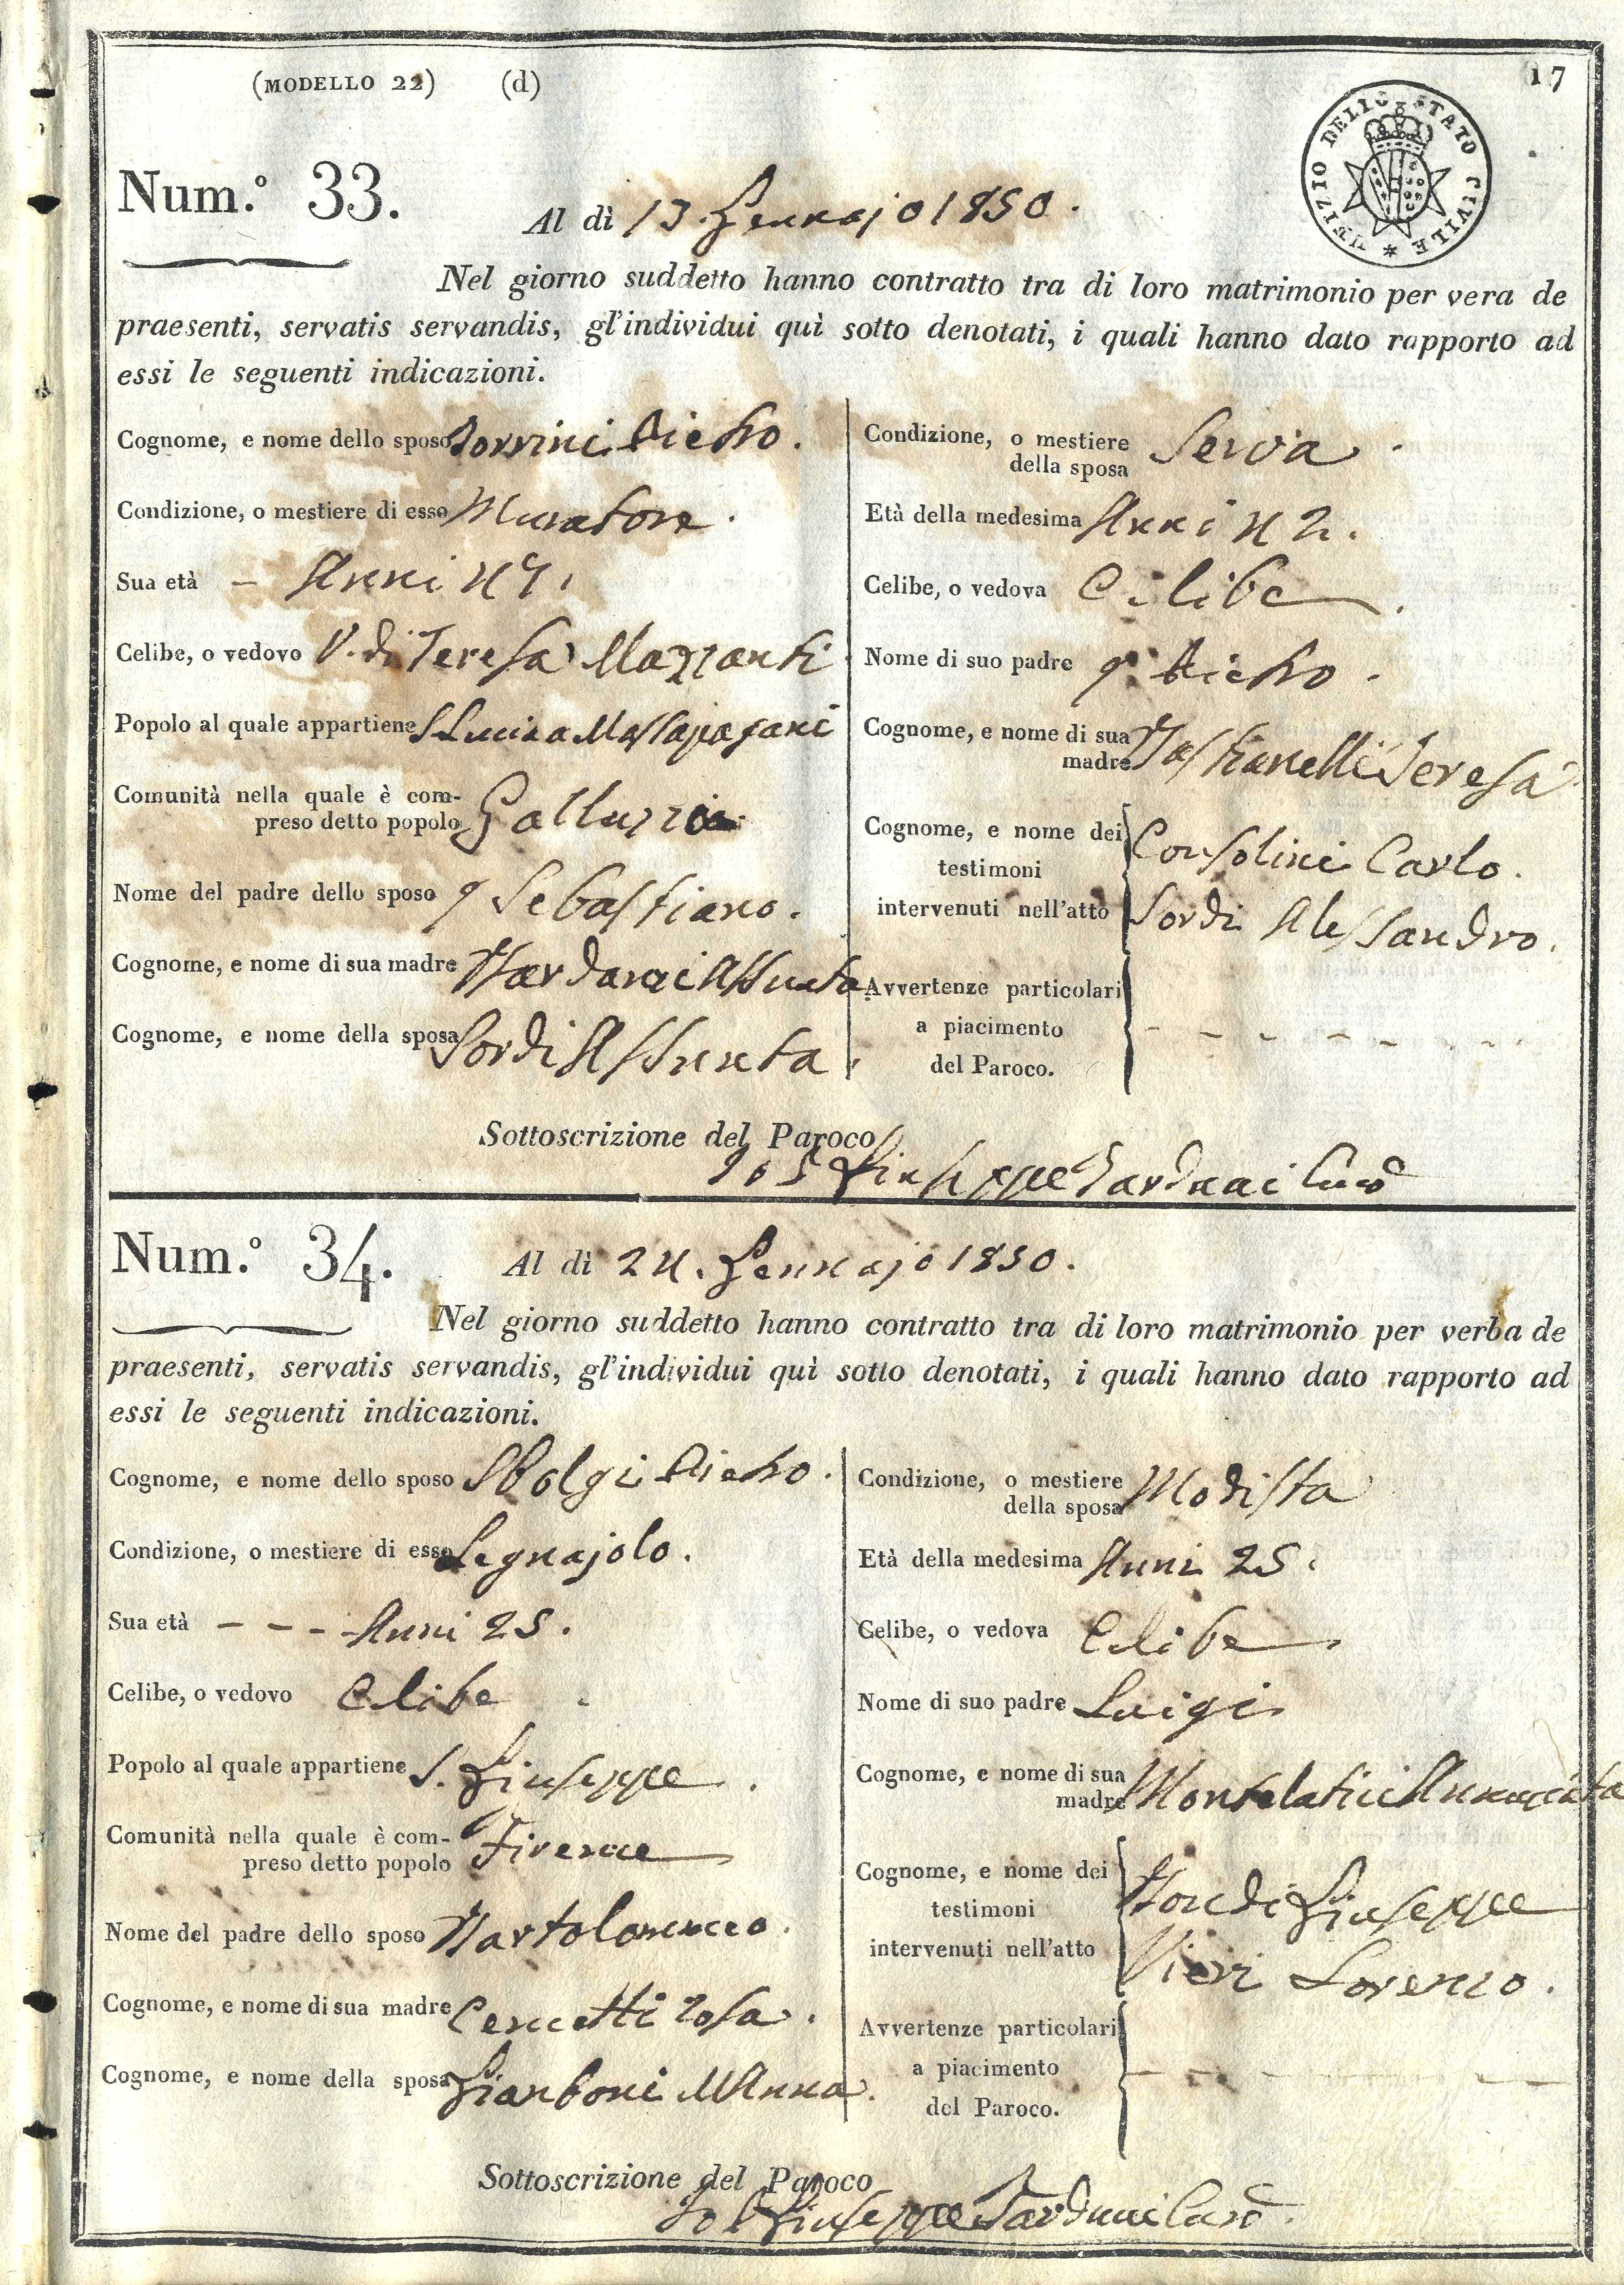 (MODELLO 22) (d) 17
UFIZIO DELLO STATO CIVILE *
Num.° 33.
Al dì 13. Gennajo 1850.
Nel giorno suddetto hanno contratto tra di loro matrimonio per vera de
praesenti, servatis servandis, gl'individui quì sotto denotati, i quali hanno dato rapporto ad
essi le seguenti indicazioni.
Cognome, e nome dello sposo Pietro.
Condizione, o mestiere di esso Muratore.
Sua età – Anni 47.
Celibe, o vedovo V. di Teresa Mazzanti
Popolo al quale appartiene S Lucia a Massapagani
Comunità nella quale è com-
preso detto popolo Galluzzo
Nome del padre dello sposo q Sebastiano.
Cognome, e nome di sua madre Assunta
Cognome, e nome della sposa Sordi Assunta.
Condizione, o mestiere
della sposa Serva
Età della medesima Anni 42.
Celibe, o vedova Celibe.
Nome di suo padre q. Pietro.
Cognome, e nome di sua
madre Bastianelli Teresa
Cognome, e nome dei
testimoni
intervenuti nell'atto
Consolini Carlo.
Sordi Alessandro.
Avvertenze particolari
a piacimento
del Paroco.
Sottoscrizione del Paroco
Giuseppe Curo
Num.° 34.
Al dì 24. Gennajo 1850.
Nel giorno suddetto hanno contratto tra di loro matrimonio per verba de
praesenti, servatis servandis, gl'individui quì sotto denotati, i quali hanno dato rapporto ad
essi le seguenti indicazioni.
Cognome, e nome dello sposo Sbolgi Pietro.
Condizione, o mestiere di esso Legnajolo.
Sua età – – – Anni 25.
Celibe, o vedovo Celibe
Popolo al quale appartiene S. Giuseppe.
Comunità nella quale è com-
preso detto popolo Firenze
Nome del padre dello sposo Bartolommeo.
Cognome, e nome di sua madre Cencetti Rosa.
Cognome, e nome della sposa Giarboni M Anna.
Condizione, o mestiere
della sposa Modista
Età della medesima Anni 25.
Celibe, o vedova Celibe
Nome di suo padre Luigi
Cognome, e nome di sua
madre Montelatici Annunziata
Cognome, e nome dei
testimoni
intervenuti nell'atto
Bondi Giuseppe
Vieri Lorenzo.
Avvertenze particolari
a piacimento
del Paroco.
Sottoscrizione del Paroco
Giuseppe Curo.